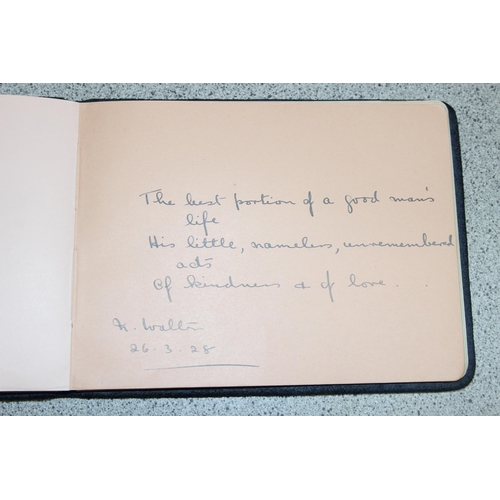 The best portion of a good man's
life
His little, nameless, unremembered
acts
Of kindness & of love.
K. Walton
26.3.28